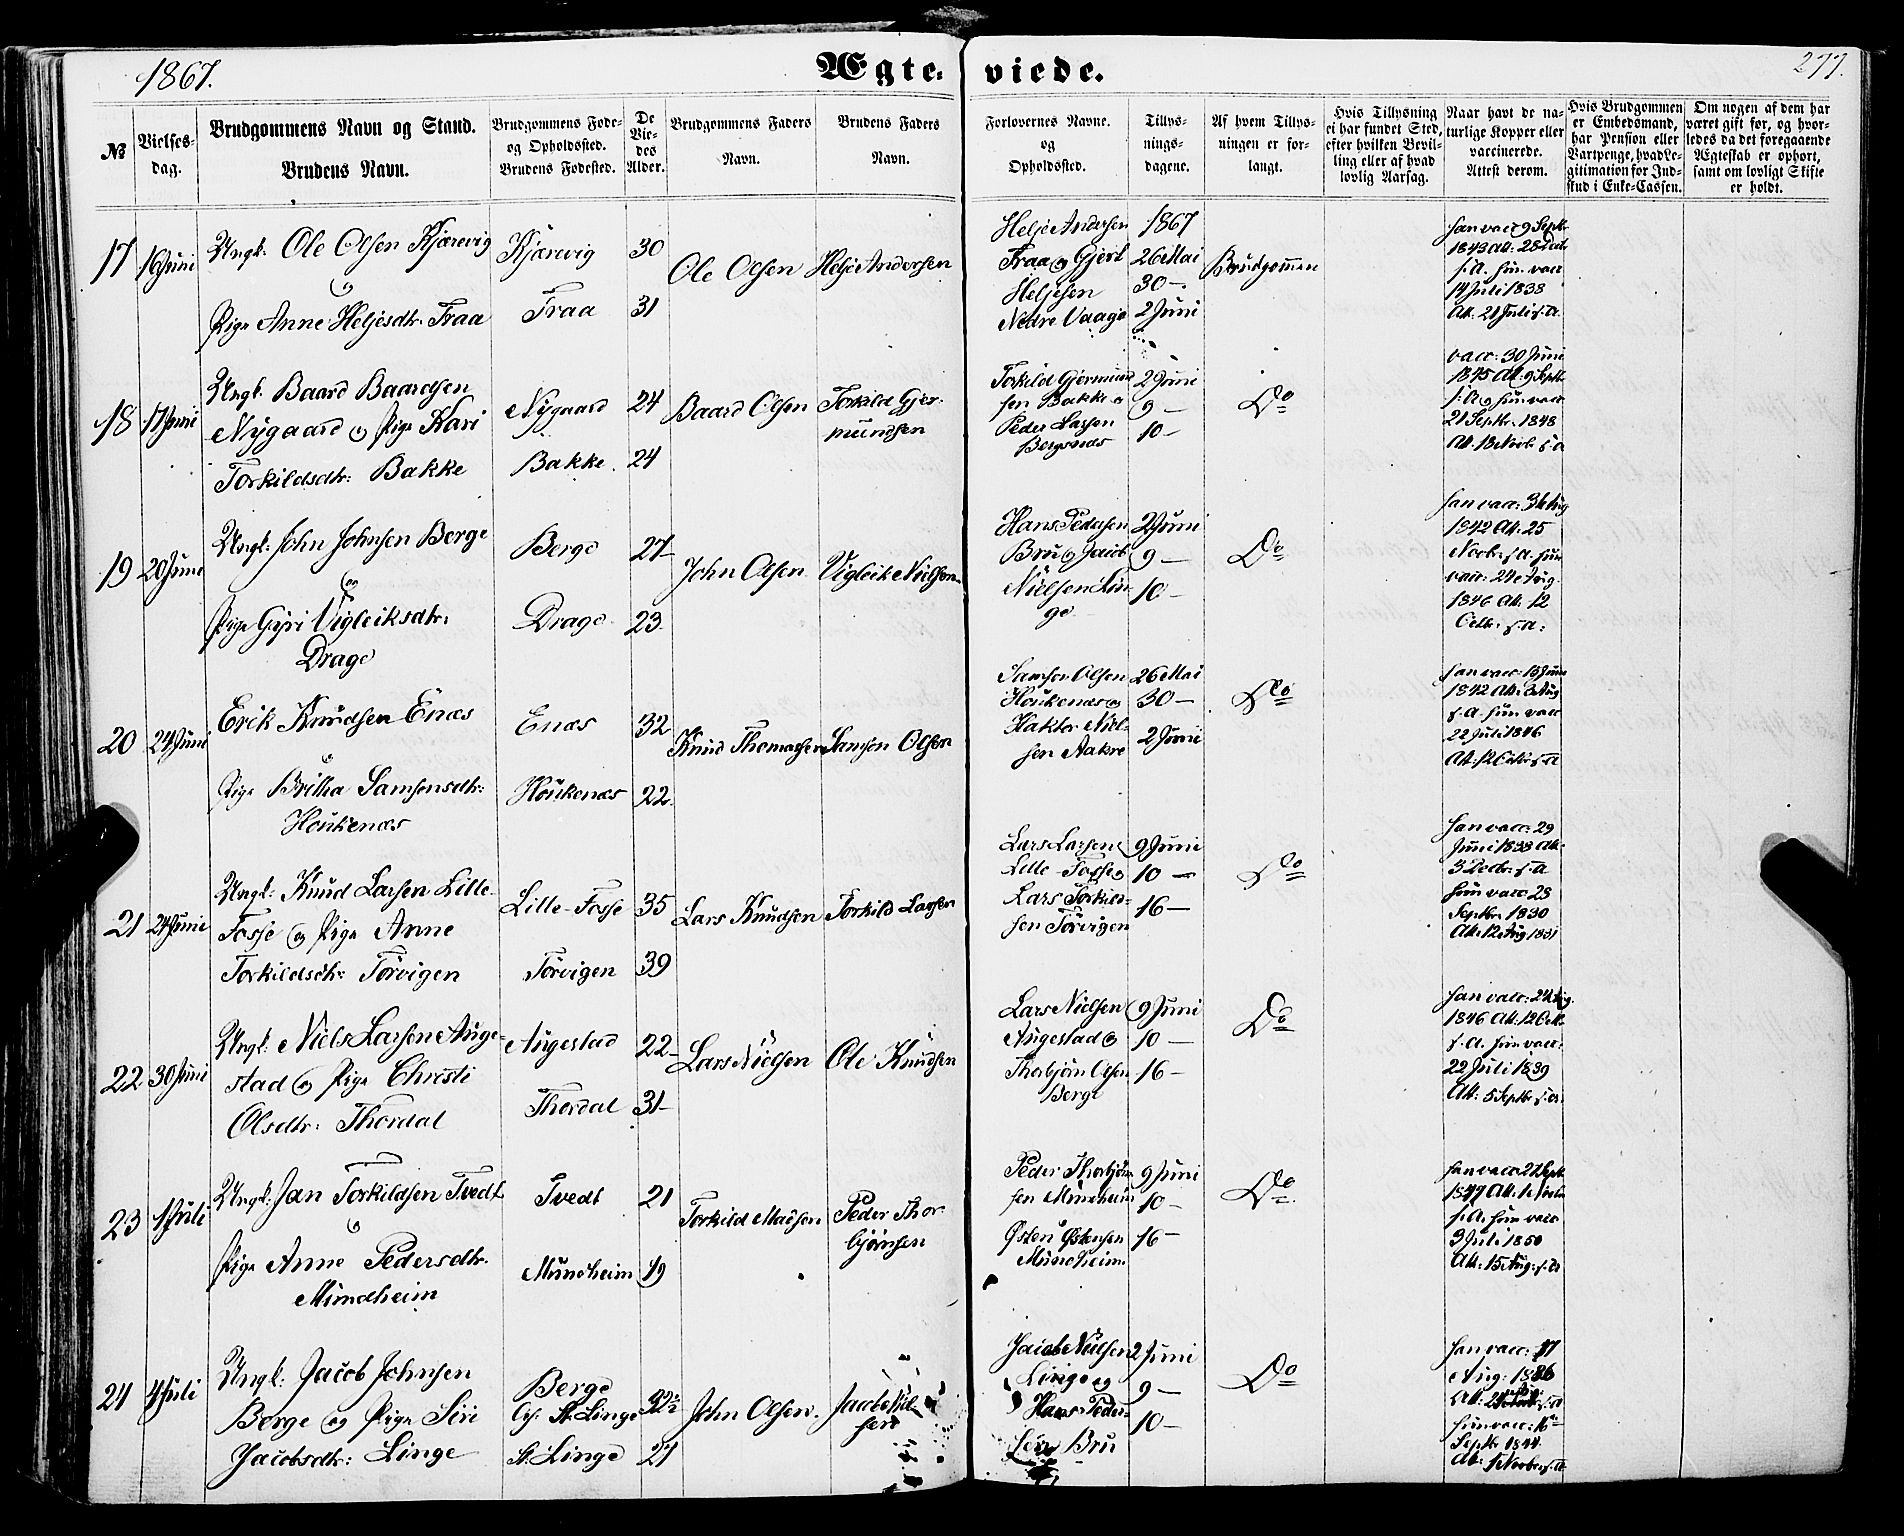 1867.
Ægteviede.
277.
№
Vielsesdag.
Brudgommens Navn og Stand.
Brudens Navn.
Brudgommens Føde- og Opholdssted.
Brudens Fødested.
De Viedes Alder.
Brudgommens Faders Navn.
Brudens Faders Navn.
Forlovernes Navne. og Opholdssted.
Tillysningsdagene.
Af hvem Tillysningen er forlangt.
Hvis Tillysning ei har fundet Sted, efter hvilken Bevilling eller af hvad lovlig Aarsag.
Naar havt de naturlige Kopper eller vaccinerede. Attest derom.
Hvis Brudgommen er Embedsmand, har Pension eller Vartpenge, hvad Legitimation for Indskud i Enke-Cassen.
Om nogen af dem har været gift før, og hvorledes da det foregaaende Ægteskab er ophørt, samt om lovligt Skifte er holdt.
17 16 Juni
Ungk. Ole Olsen Kjærevig
og
Pige Anne Heljesdtr. Fraa
Kjærevig 30
Fraa 31
Ole Olsen
Helje Andersen
Helje Andersen
Fraa og Gjert
Heljesen
Nedre Vaage
1867
26 Mai
30 —
2 Juni
Brudgommen
han vacc 9 Septr
1843 Att: 28 Decb
s. A. hun vacc
14 Juli 1838
Att: 21 Juli s. A.
18 17 Juni
Ungk. Baard Baardsen
Nygaard og Pige Kari
Torkildsdtr: Bakke
Nygaard 24
Bakke 24
Baard Olsen
Torkild Gjermundsen
Torkild Gjermundsen Bakke og
Peder Larsen
Bergsnæs
2 Juni
9 —
10 —
Do
vacc: 30 Juni
1845 Att: 9 Septr
s: A og hun vacc
21 Septr. 1848
Att. 18 Novb. s. A
19 20 Juni
Ungk: John Johnsen Berge
og
Pige Gyri Vigleiksdtr:
Drage
Berge 27
Drage 23
John Olsen
Vigleik Nielsen
Hans Pedersen
Bru og Jacob
Nielsen Linge
2 Juni
9 —
10 —
Do
han vacc: 31 Aug
1842 Att: 25
Novb. s. A. hun
vacc: 24 Aug.
1846 Att: 12
Octbr. s. A:
20 24 Juni
Erik Knudsen Enæs
og
Pige Britha Samsonsdtr:
Houkenæs
Enæs 32
Houkenæs 22
Knud Thomassen
Samson Olsen
Samson Olsen
Houkenæs og
Haktor Nielsen Aakre
26 Mai
30 —
2 Juni
Do
han vacc: 13 Juni
1842 Att: 3 Aug
s. A. hun vacc
22 Juli 1846
Att. 12 Octbr. s. A
21 24 Juni
Ungk. Knud Larsen Lille-
Fosse og Pige Anne
Torkildsdtr: Torvigen
Lille-Fosse 35
Torvigen 39
Lars Knudsen
Torkild Larsen
Lars Larsen
Lille-Fosse og
Lars Torkildsen Torvigen
9 Juni
10 —
16 —
Do
han vacc: 29
Juni 1833 Att:
3 Decbr. s. A
hun vacc 23
Septbr. 1830
Att. 12 Aug 1831
22 30 Juni
Ungk: Niels Larsen Augestad og Pige Christi
Olsdtr: Thordal
Augestad 22
Thordal 31
Lars Nielsen
Ole Knudsen
Lars Nielsen
Augestad og
Thorbjørn Olsen
Berge
9 Juni
10 —
16 —
Do
han vacc: 24 Aug.
1846 Att. 12 Oct.
s. A. hun vacc:
22 Juli 1839
Att: 5 Septbr s. A.
23 1 Juli
Ungk: Jan Torkildsen Tvedt
og
Pige Anne Pedersdtr.
Mundheim
Tvedt 21
Mundheim 19
Torkild Madsen
Peder Thorbjørnsen
Peder Thorbjørnsen Mundheim
Østen Østensen
Mundheim
9 Juni
10 —
16 —
Do
han vacc 22 Septr
s. A. hun vacc
3 Juli 1850
Att. 15 Aug. s. A
24 4 Juli
Ungk: Jacob Johnsen
Berge og Pige Siri
Jacobsdtr: Linge
Berge
St. Linge 22½
St. Linge 21
John Olsen
Jacob Nielsen
Jacob Nielsen
Linge og
Hans Pedersen Bru
2 Juni
9 —
10 —
Do
han vacc: 17
Aug:
hun vacc: 16
Septbr 1844
Att: 1 Novber s. A